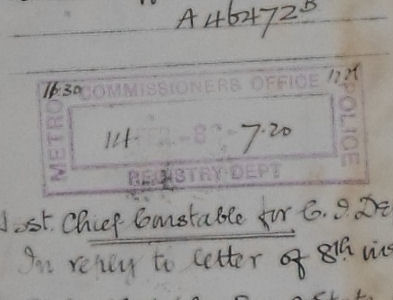 A46472B
16.30 COMMISSIONERS OFFICE
METRO POLICE
14 7.20
REGISTRY DEPT
Chief Constable for C. I. De
In reply to letter of 8th ins